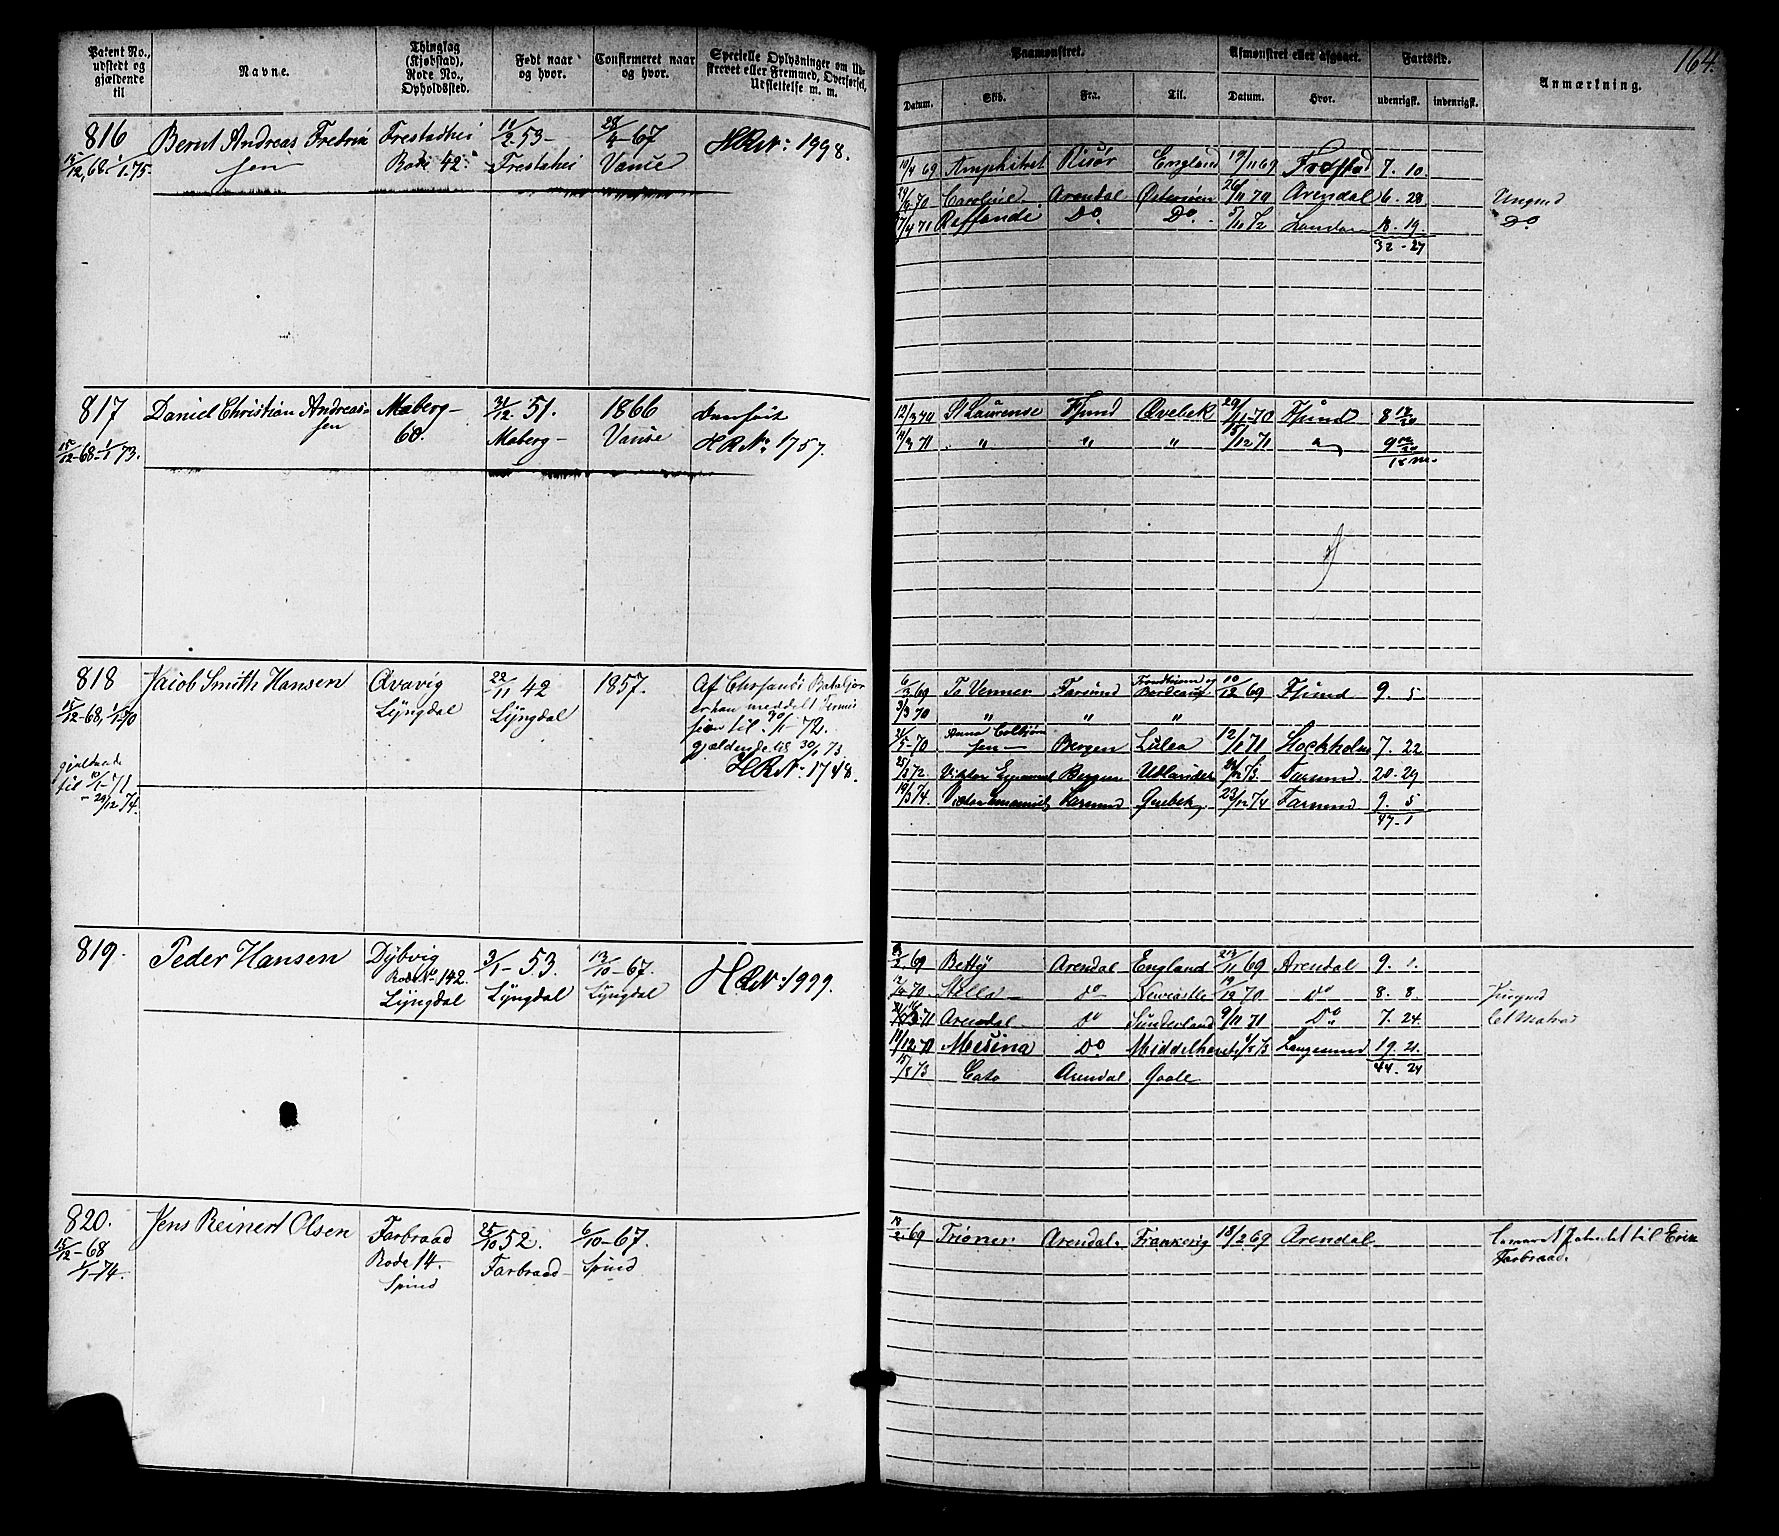 164.
Patent No., udstedt og gjældende til
Navne.
Thinglag (Kjøbstad), Rode No., Opholdssted.
Født naar og hvor.
Confirmeret naar og hvor.
Specielle Oplysninger om Ud-
skrevet eller Fremmed, Overførsel,
Udslettelse m. m.
Paamønstret.
Afmønstret eller afgaaet.
Fartstid.
Anmærkning.
Datum. Skib. Fra. Til. Datum. Hvor. udenrigsk. indenrigsk.
816 Bernt Andreas Fredrik- Frestadhei 11/2 53 28/4 67 HRNr: 1998.
15/12 68 - 1/1 75. sen Rode 42: Frestahei Vanse
19/4 69 Amphitrit Risør England 19/11 69 7. 10.
70 Caroline Arendal Østersøen 26/11 70 Arendal 6. 28 Ungmd
7/4 71 Do. Do. London 18. 19. Do
32 - 27
817 Daniel Christian Andreas- Maberg- 31/12 51. 1866
sen 60. Maberg- Vanse HRNr: 1757.
15/12 - 68 - 1/1 73.
12/3 70 St Laurense Fsund Qvebek 29/11 70 Fsund 8
71 " " " 15/12 71 " 9
18 m.
818 Jacob Smith Hansen Qvavig 22/11 42 1857. Af Chrsands Bataljon
15/12 - 68, 1/1 70 Lyngdal Lyngdal er han meddelt Permis
sion til 30/1 - 72.
gjældende til 30/1 73
HRNr: 1748.
gjældende
til 10/1 - 71
- 29/12 74.
6/3 69 To Venner Farsund Trondhjem og Bordeaux 10/12 69 Fsund 9. 5
3/3 70 " " "
70 Anna Colbjørn
sen Bergen Lulea 12/1 71 Stockholm 7. 22
25/3 72 Viktor Bergen Udlandet 73. Farsund 20. 29
19/3 74 Victor Emanuel Farsund Qvebek 23/12 74 Farsund 9. 5
47. 1
819. Peder Hansen Dybvig 3/1 - 53. 13/10 - 67. HRNr: 1999.
Rode No 142. Lyngdal Lyngdal
Lyngdal
69 Betty Arendal England 23/11 69 Arendal 9. 1.
12/4 70 Stella Do Newcastle 19/12 70 Do 8. 8. Jungmd
71 Arendal Do Sunderland 9/11 71 Do 7. 24. Let Matros
14/12 71 Messina Do Middelhavet 73 Langesund 19. 21.
44. 24
15/8 73 Cato Arendal Goole
820. Jens Reinert Olsen Farbraad 25/10 52. 6/10 - 67.
15/12 - 68 Rode 14. Farbraad Spind
1/1 - 74. Spind
18/2 69 Arendal. 18/2 69 Arendal til
Farbraad.